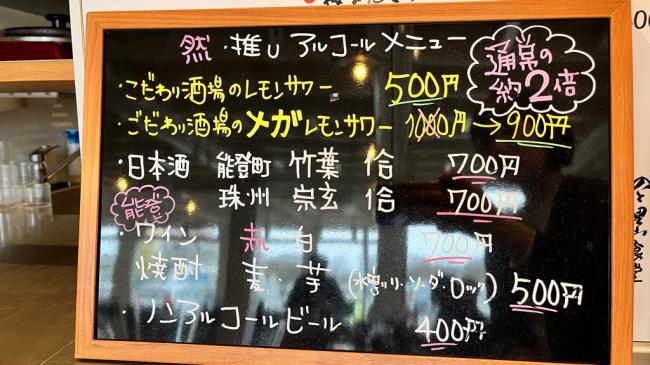 然・推しアルコールメニュー
通常の
約2倍
・こだわり酒場のレモンサワー 500円
・こだわり酒場のメガレモンサワー 1000円→900円
・日本酒 能登町 竹葉 1合 700円
能登 珠洲 宗玄 1合 700円
・ワイン 赤 白 700円
焼酎 麦・芋 (水割り・ソーダ・ロック) 500円
・ノンアルコールビール 400円